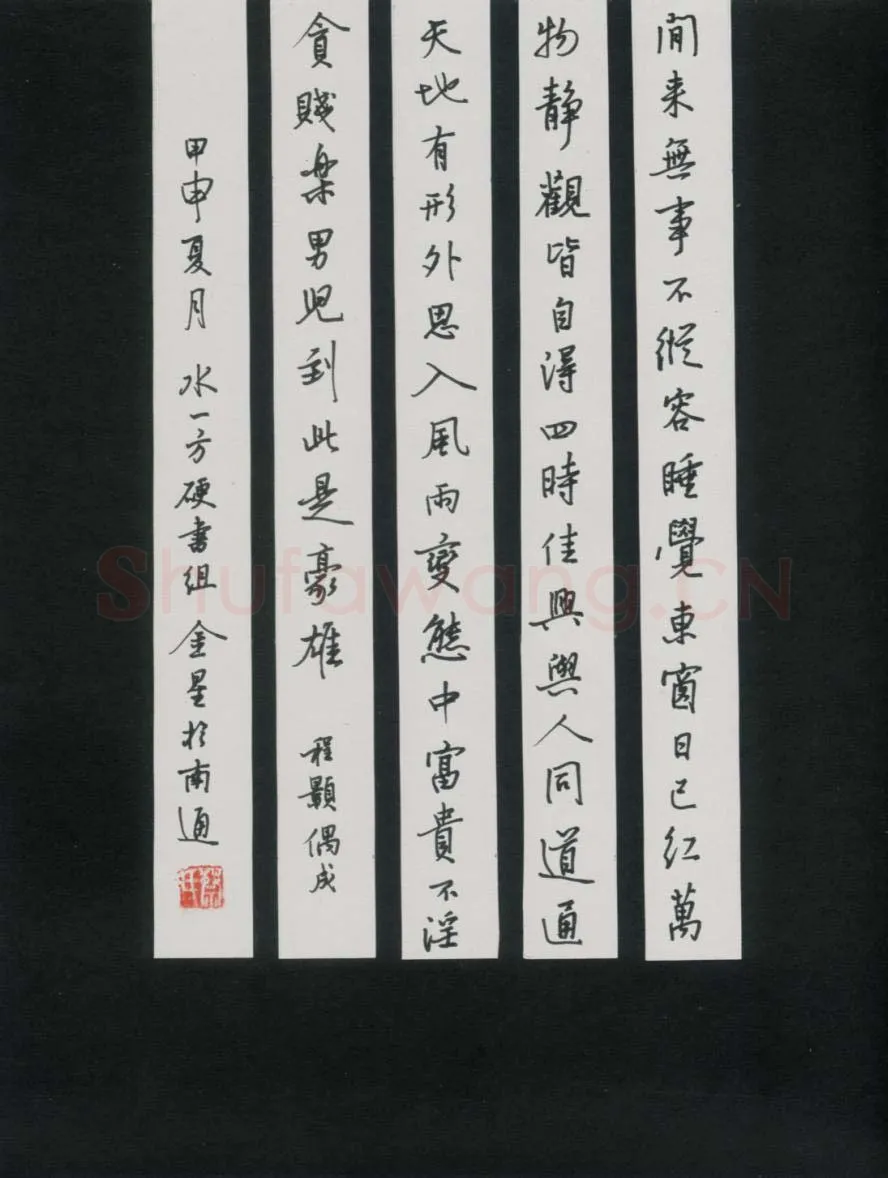 閒来無事不縱容睡覺東窗日已红萬
物静觀皆自得四時佳興與人同道通
天地有形外思入風雨變態中富貴不淫
貪賤楽男児到此是豪雄 程顥偶成
甲申夏月 水一方硬書组 金星於南通
Shufawang.CN